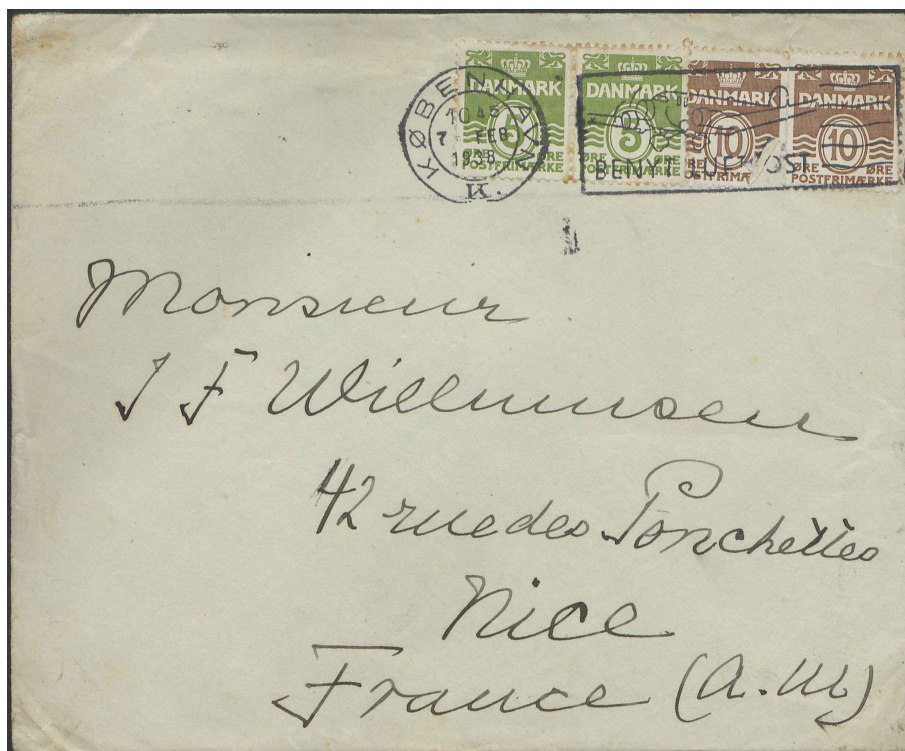 KØBENHAVN
10 45
7 FEB
1938
K.
DANMARK
5
ØRE ØRE
POSTFRIMÆRKE
DANMARK
5
ØRE ØRE
POSTFRIMÆRKE
DANMARK
10
ØRE
POSTFRIMÆ
DANMARK
10
ØRE ØRE
POSTFRIMÆRKE
BENYT LUFTPOST
Monsieur
J F Willumsen
42 rue des Ponchettes
Nice
France (A.M.)